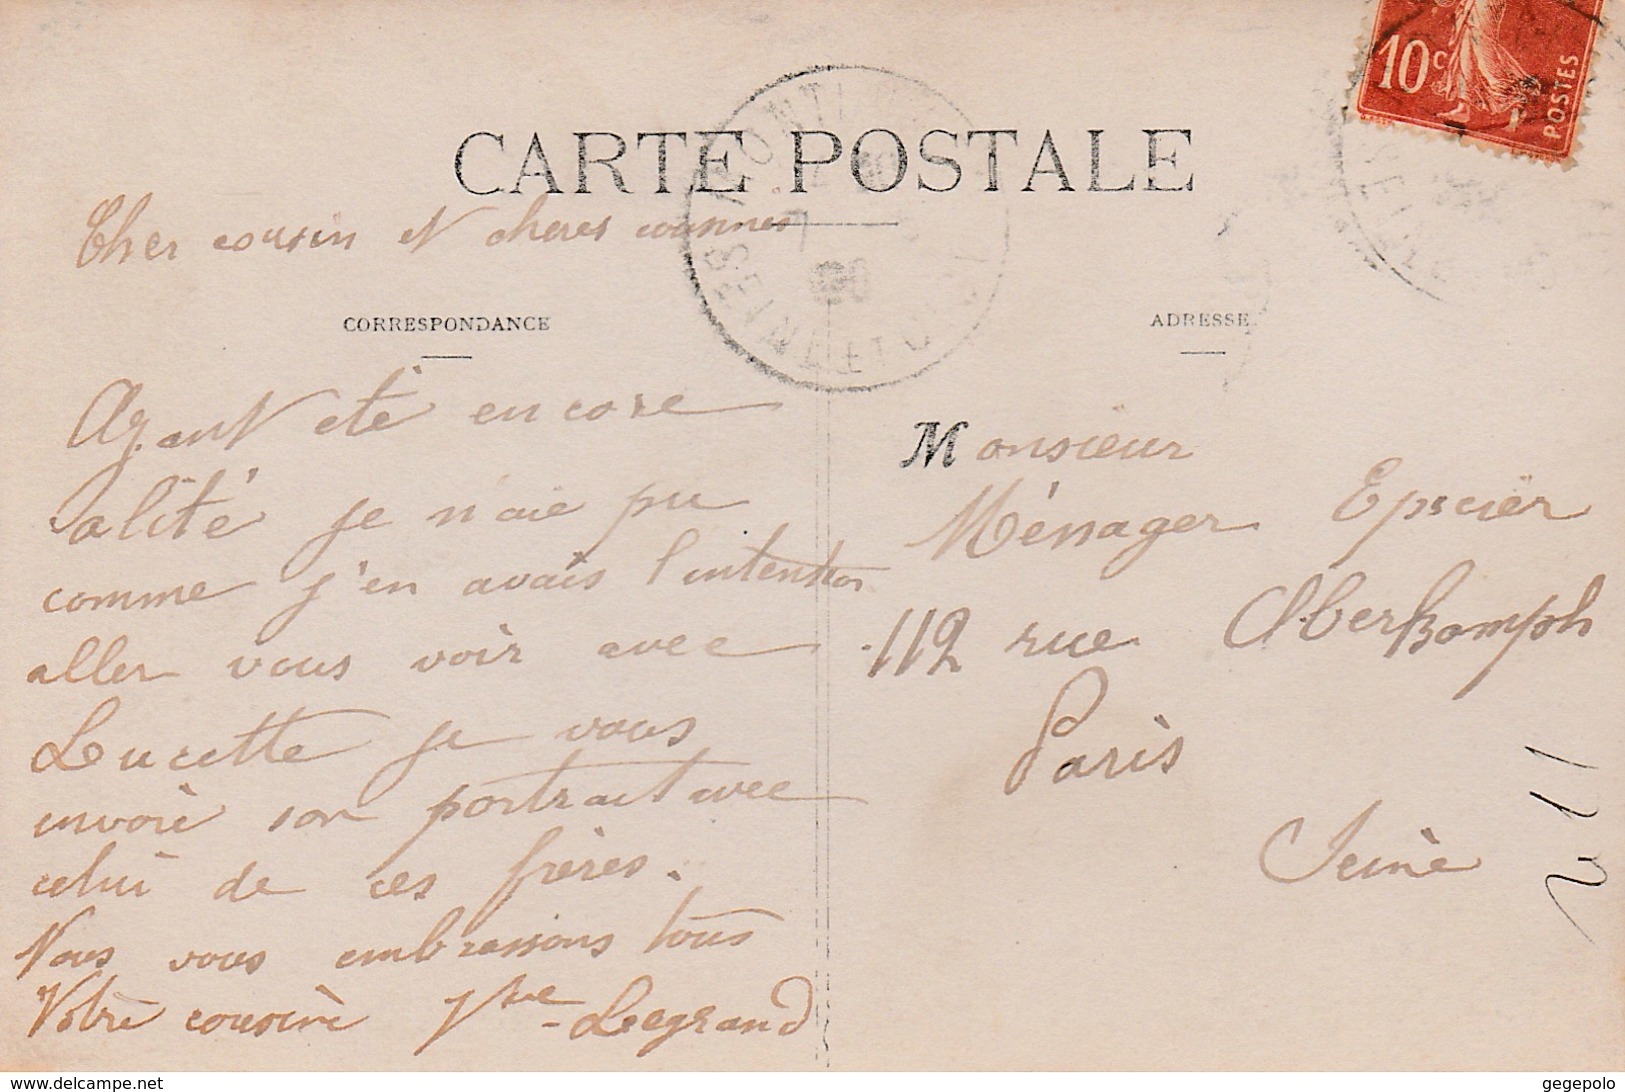 CARTE POSTALE
10c
POSTES
SEINE ET OISE
Cher cousin et cheres cousines
CORRESPONDANCE
Ayant été encore
alité je n'aie pu
comme j'en avais l'intention
aller vous voir avec
Lucette je vous
envoie son portrait avec
celui de ces frères.
Nous vous embrassons tous
Votre cousine Vve Legrand
ADRESSE
Monsieur
Ménager Epicier
112 rue Oberkomph
Paris
Seine
www.delcampe.net
gegepolo